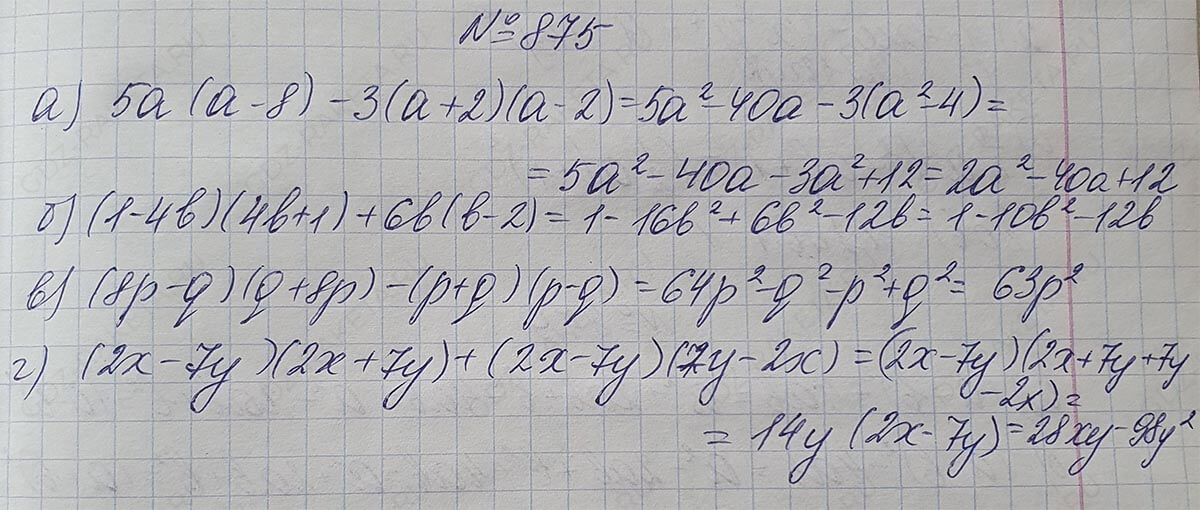 № 875
а) 5a (a - 8) - 3(a + 2)(a - 2) = 5a² - 40a - 3(a² - 4) =
= 5a² - 40a - 3a² + 12 = 2a² - 40a + 12
б) (1 - 4b)(4b + 1) + 6b(b - 2) = 1 - 16b² + 6b² - 12b = 1 - 10b² - 12b
в) (8p - q)(q + 8p) - (p + q)(p - q) = 64p² - q² - p² + q² = 63p²
г) (2x - 7y)(2x + 7y) + (2x - 7y)(7y - 2x) = (2x - 7y)(2x + 7y + 7y
- 2x) =
= 14y (2x - 7y) = 28xy - 98y²